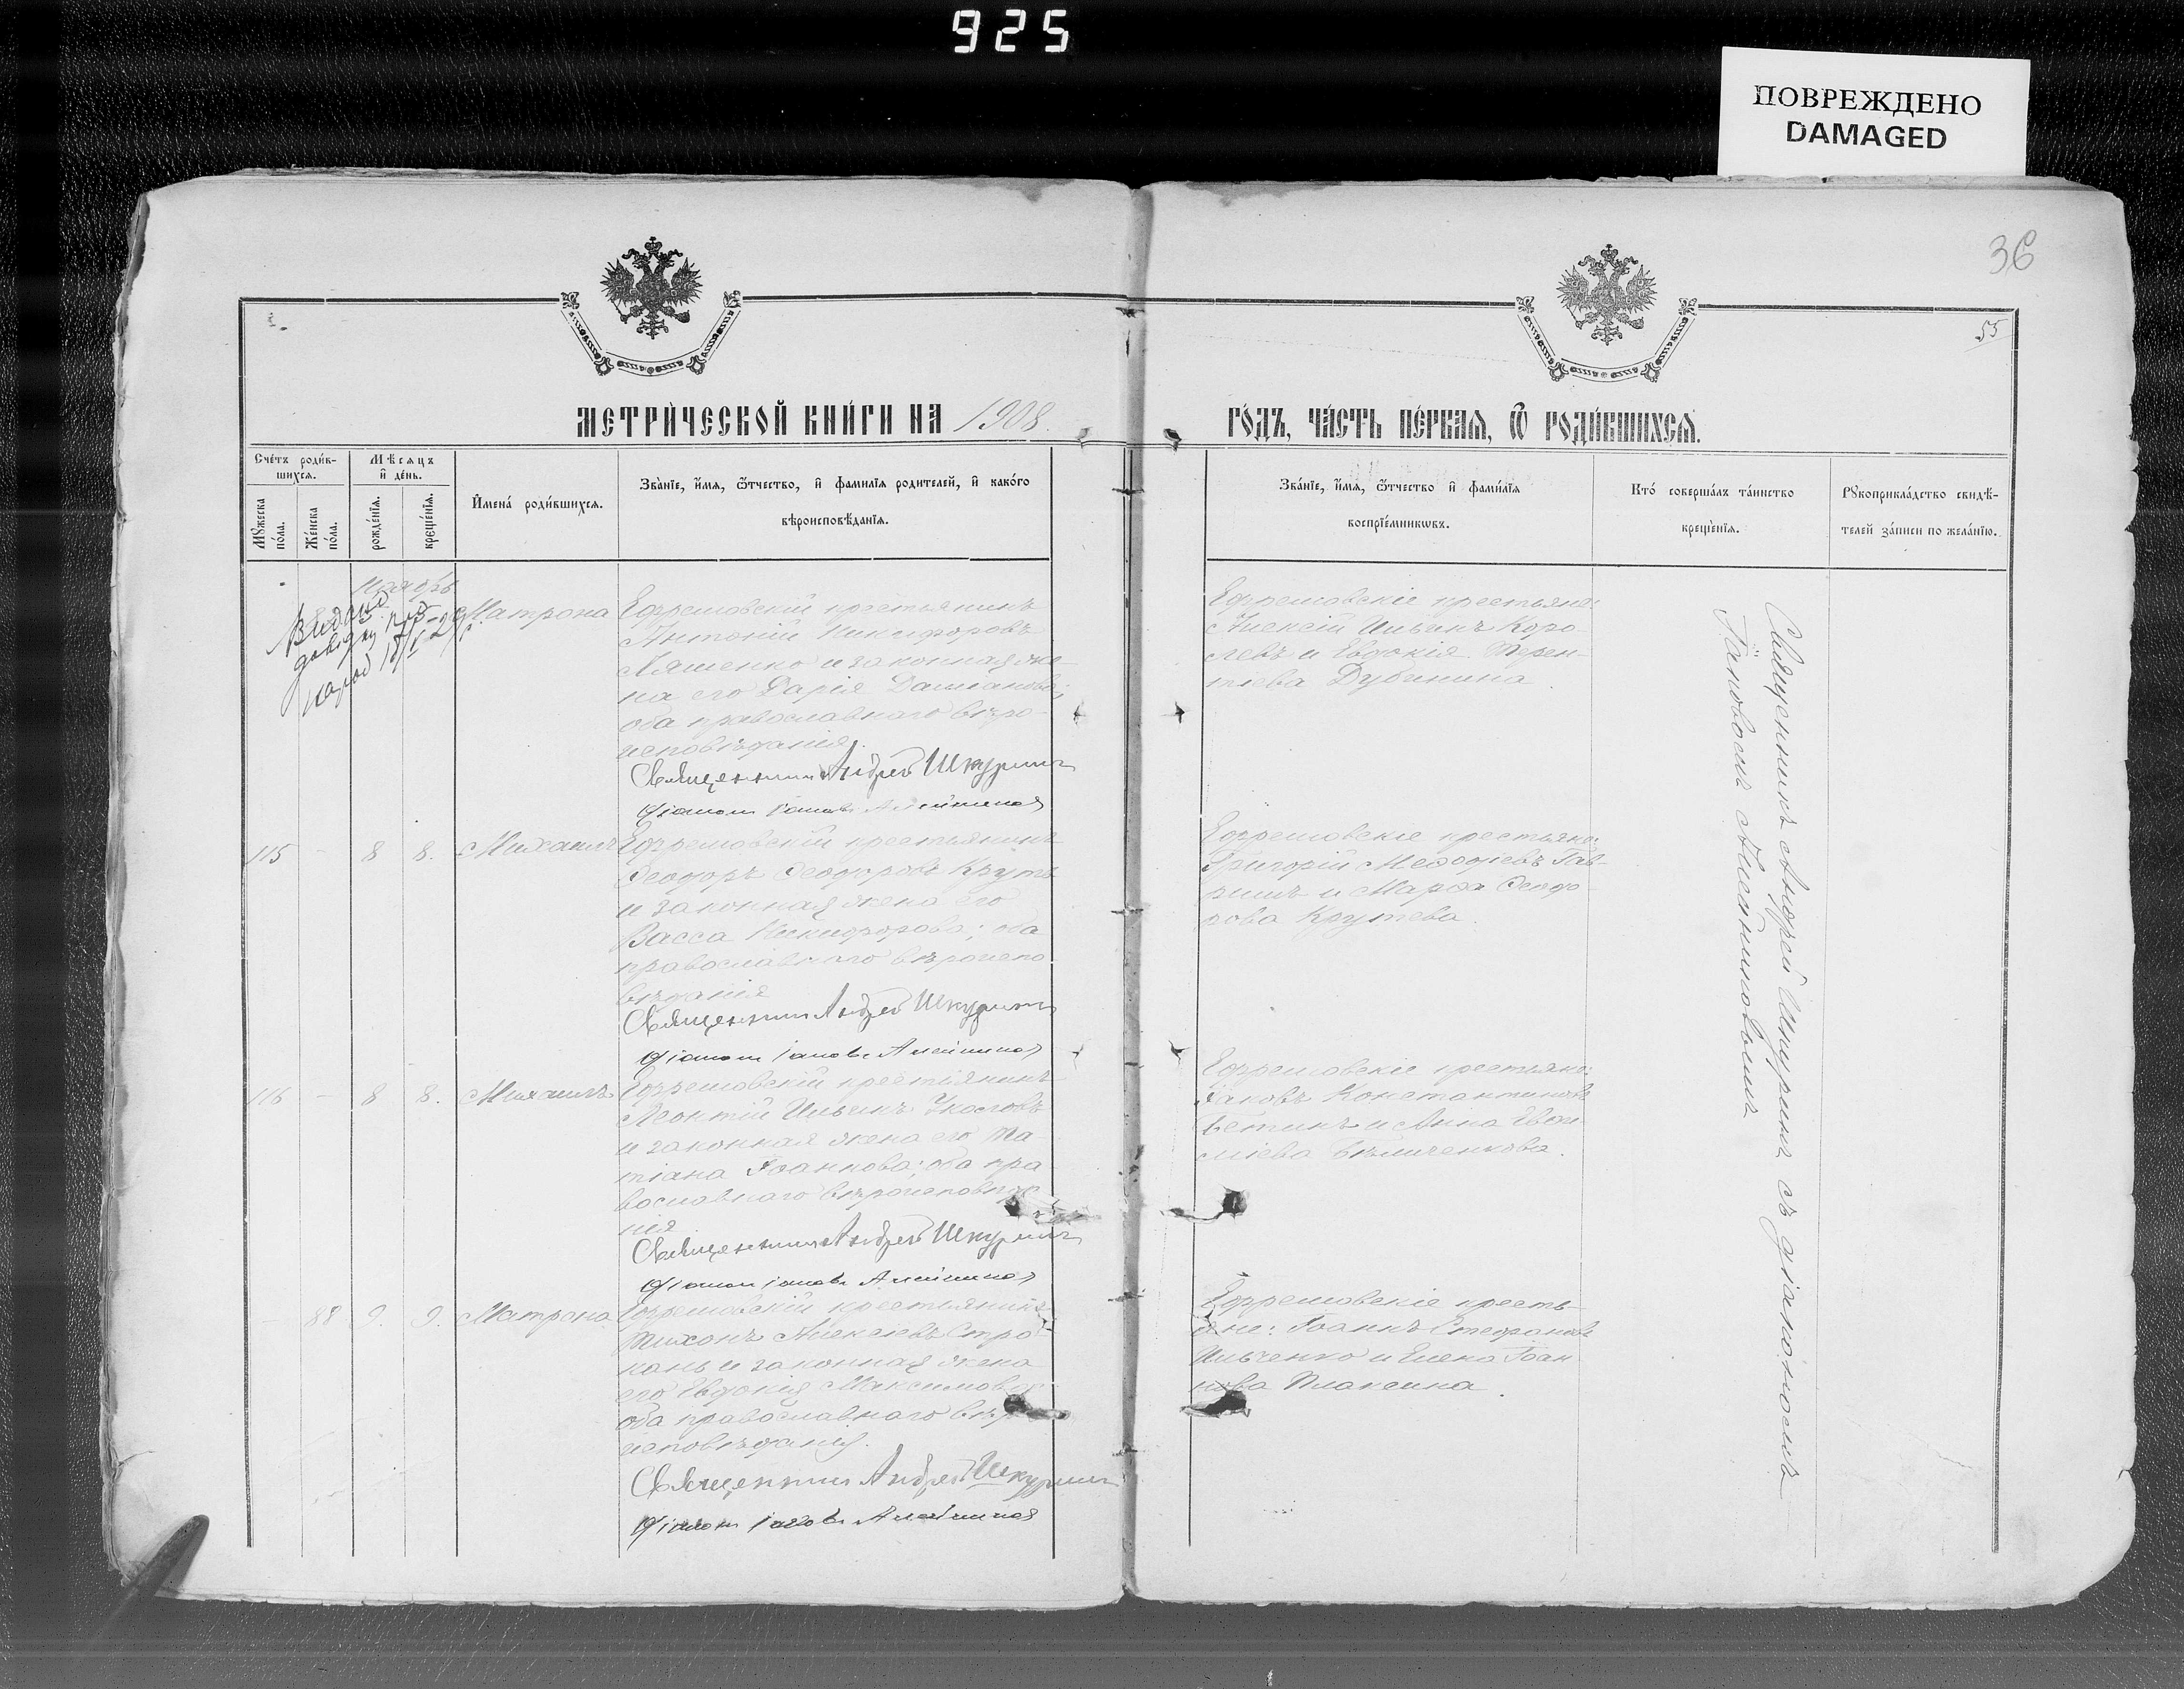 925
ПОВРЕЖДЕНО
DAMAGED
36
55
МЕТРИ́ЧЕСКОЙ КНИ́ГИ НА 1908.
ГО́ДЪ, ЧА́СТЬ ПЕ́РВАЯ, Ѽ РОДИ́ВШИХСЯ.
Сче́тъ роди́в-
шихся.
Му́жеска по́ла.
Же́нска по́ла.
Мѣ́сяцъ
и҆ де́нь.
рожде́нїя.
креще́нїя.
И҆мена́ роди́вшихся.
Зва́нїе, и҆́мя, ѻ҆́тчество, и҆ фами́лїя роди́телей, и҆ како́го
вѣроисповѣ́данїя.
Зва́нїе, и҆́мя, ѻ҆́тчество и҆ фами́лїя
воспрїе́мникѡвъ.
Кто̀ соверша́лъ та́инство
креще́нїя.
Рꙋкоприкла́дство свидѣ́-
телей за́писи по жела́нїю.
Ноябрь
Видано
довідку
Матрона
Ефремовскій крестьянинъ
Антоній Никифоровъ
Ляшенко и законная же-
на его Дарія Даміанова;
оба православнаго вѣро-
исповѣданія.
Священникъ Андрей Шкуринъ
Діаконъ Іаковъ Алейниковъ
Ефремовскіе крестьяне:
Алексій Ильинъ Коро-
левъ и Евдокія Терен-
тіева Дубинина.
115 - 8 8. Михаилъ
Ефремовскій крестьянинъ
Ѳеодоръ Ѳеодоровъ Крутъ
и законная жена его
Васса Никифорова; оба
православнаго вѣроиспо
вѣданія
Священникъ Андрей Шкуринъ
Діаконъ Іаковъ Алейниковъ
Ефремовскіе крестьяне:
Григорій Меѳодіевъ Гав-
ришъ и Марѳа Ѳеодо-
рова Крутева.
116 - 8 8. Михаилъ
Ефремовскій крестіянинъ
Леонтій Ильинъ
и законная жена его Та-
тіана Іоаннова; оба пра
вославнаго вѣроисповѣда
нія
Священникъ Андрей Шкуринъ
Діаконъ Іаковъ Алейниковъ
Ефремовскіе крестьяне:
Іаковъ Константиновъ
и Анна Евѳи
міева Вѣличенкова.
- 88 9. 9. Матрона
Ефремовскій крестьянинъ
Тихонъ Алексіевъ Стро
кань и законная жена
его Евдокія Максимова
оба православнаго вѣро
исповѣданія.
Священникъ Андрей Шкуринъ
Діаконъ Іаковъ Алейниковъ
Ефремовскіе кресть-
яне: Іоаннъ Стефановъ
Ильченко и Елена Іоан
нова Плаксина.
Священникъ Андрей Шкуринъ съ діакономъ
Іаковомъ Алейниковымъ